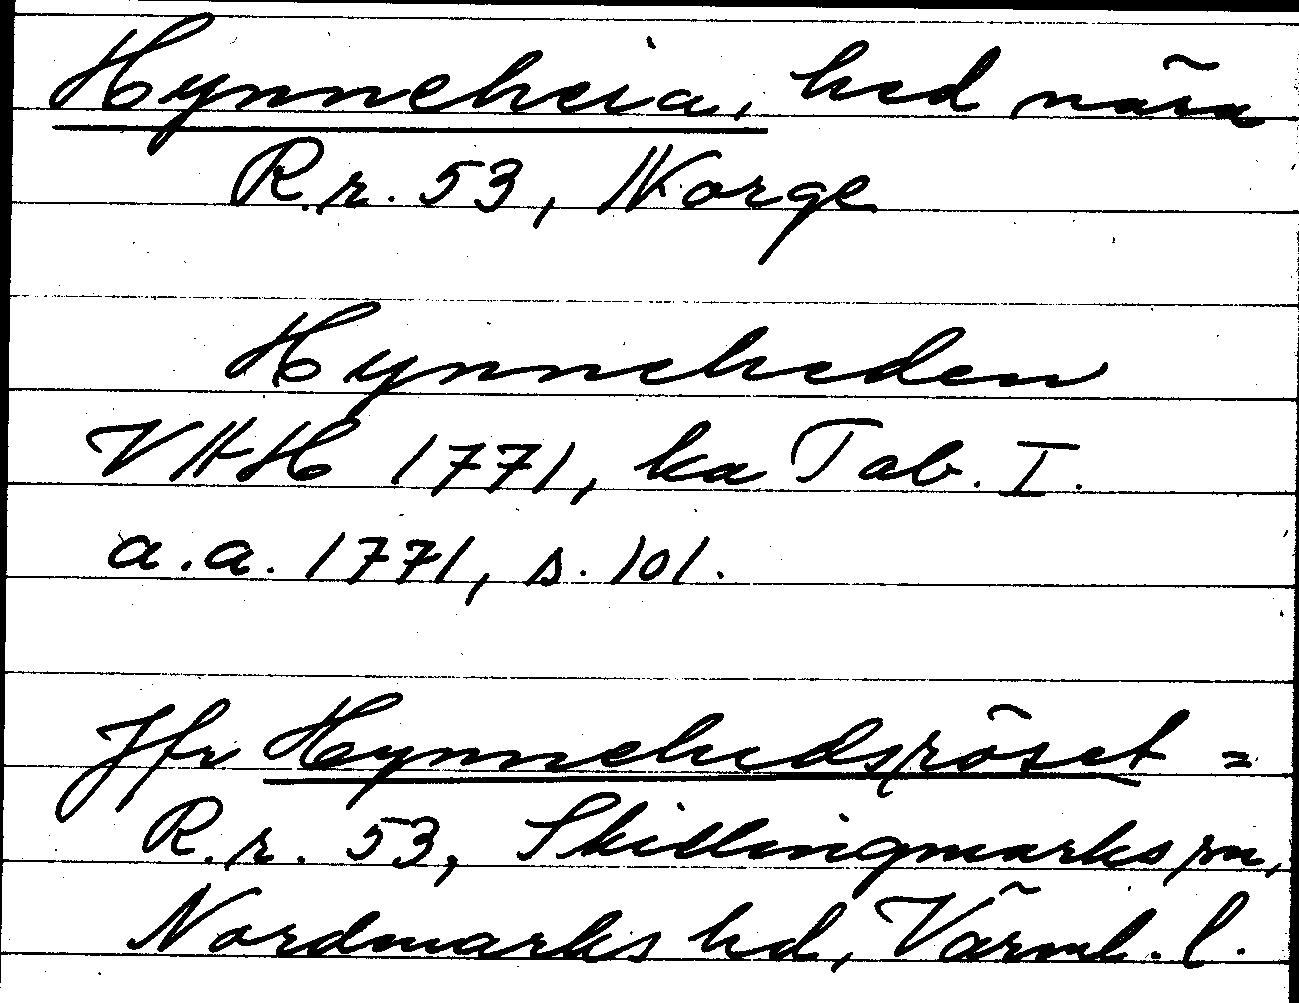 Hynneheia, hed nära
R.r. 53, Norge
Hynneheden
VHH 1771, ka Tab. I.
a.a. 1771, s. 101.
Jfr Hynnehedsröset =
R.r. 53, Skillingmarks sn,
Nordmarks hd, Värml. l.